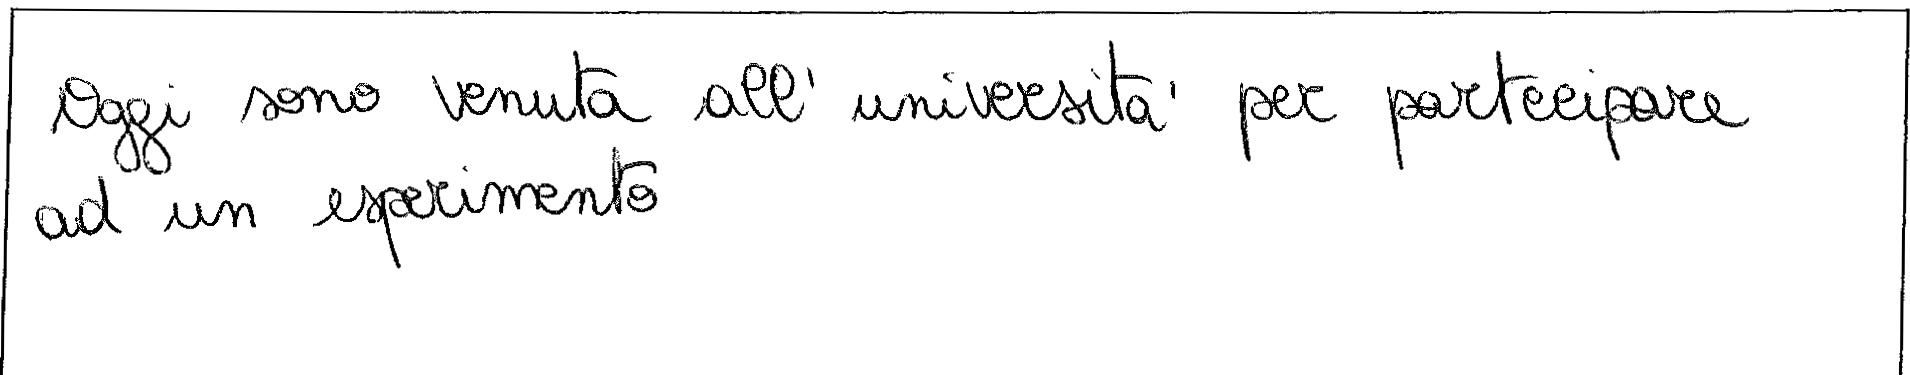 Oggi sono venuta all' universita' per partecipare
ad un esperimento